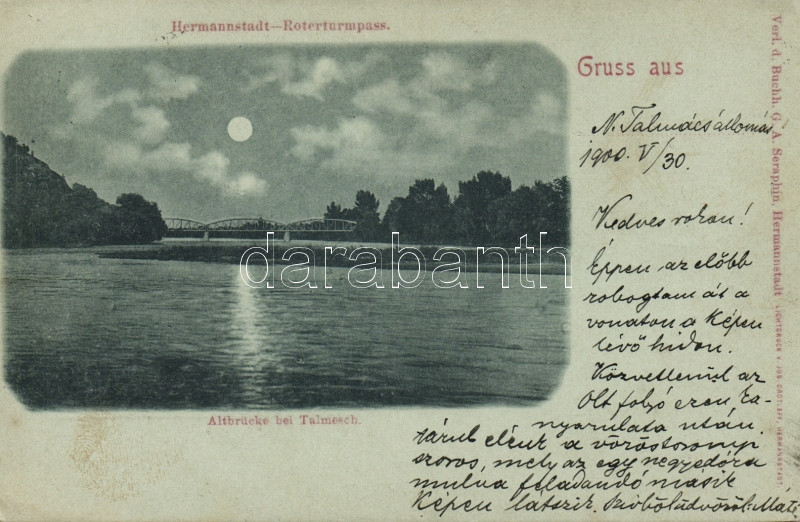 Hermannstadt—Roterturmpass.
Gruss aus
N. Talmács állomás
1900. V/30.
Kedves rokon!
Éppen az előbb
robogtam át a
vonaton a képen
lévő hidon.
Közvetlenül az
Olt folyó ezen
nyarulata után
tárul elénk a vöröstoronyi
szoros, mely az egy negyedóra
mulva feladandó másik
képen látszik. Szivből üdvözöl: Máté
Altbrücke bei Talmesch.
Verl. d. Buchh. G. A. Seraphin, Hermannstadt
LICHTDRUCK V. JOS. DROTLEFF, HERMANNSTADT.
darabanth